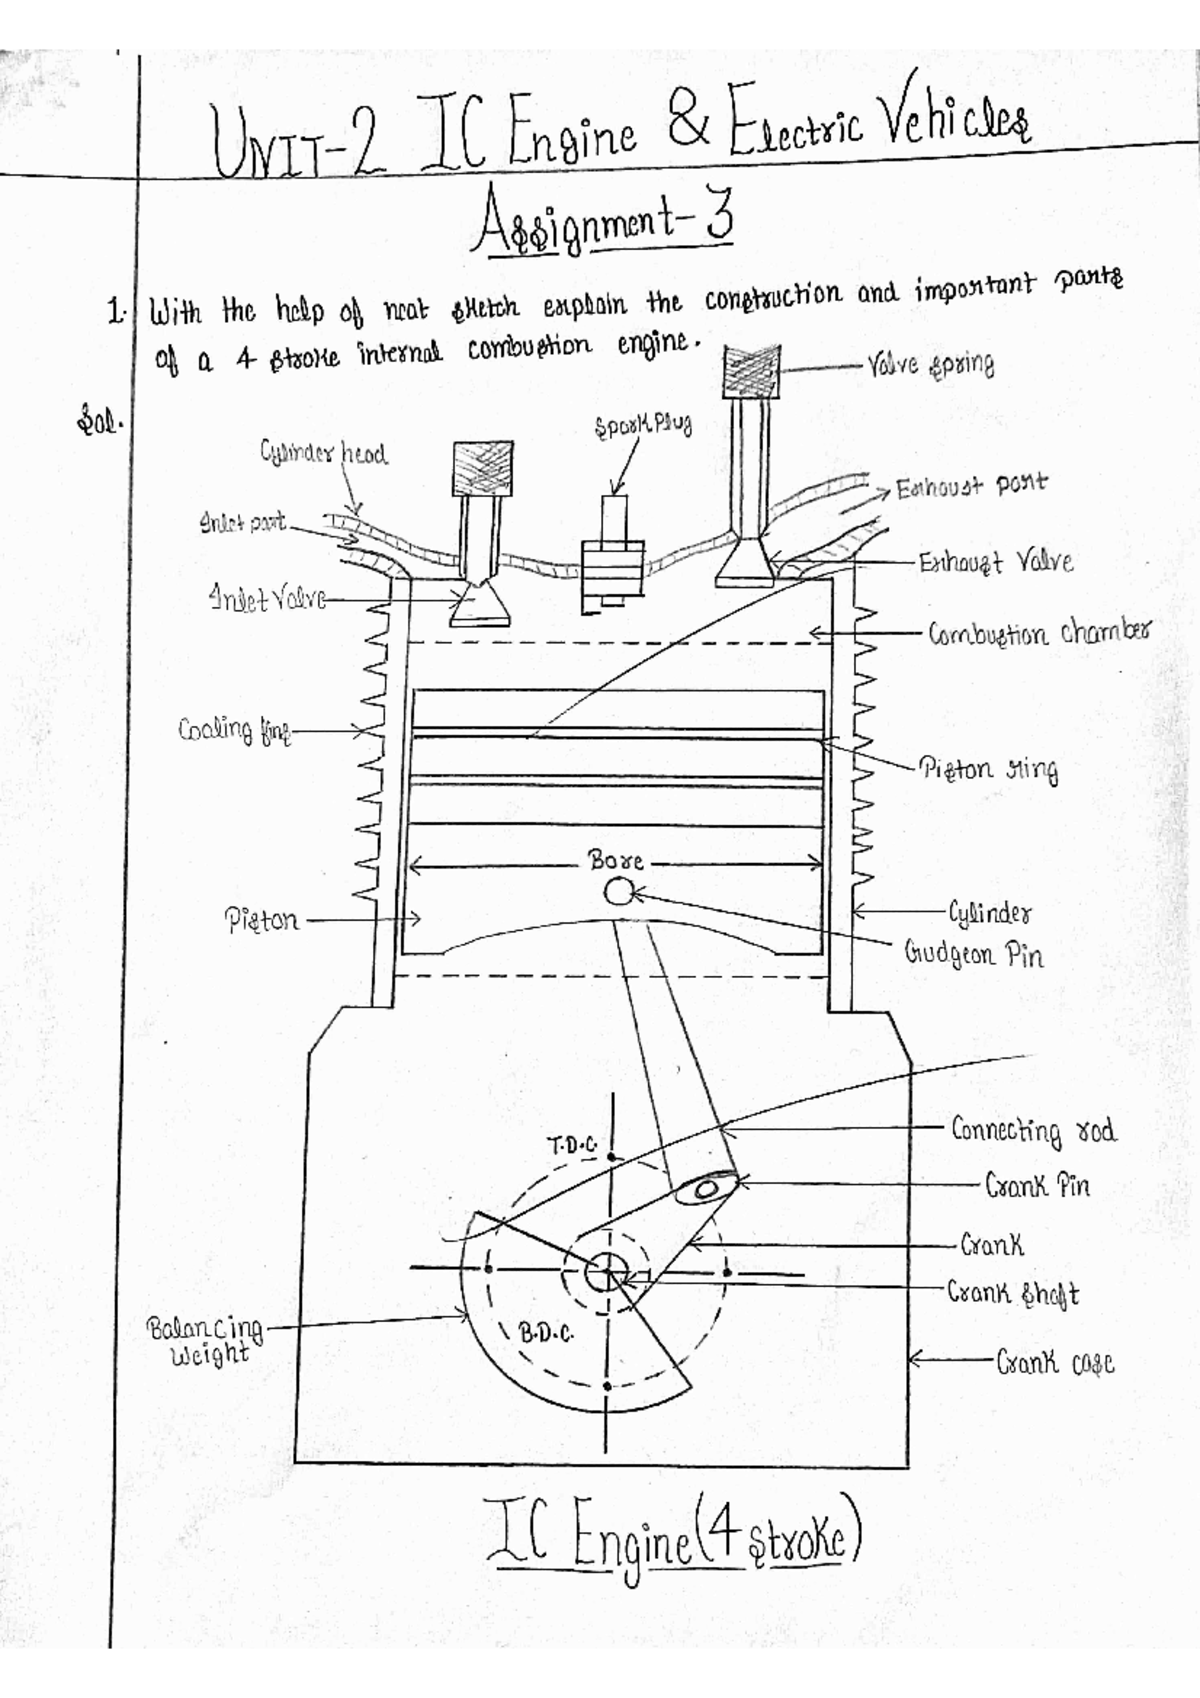 UNIT-2 IC Engine & Electric Vehicles
Assignment-3
1. With the help of neat sketch explain the construction and important parts
of a 4 stroke internal combustion engine.
Sol.
Valve spring
Spark Plug
Cylinder head
Exhaust port
Inlet port
Exhaust Valve
Inlet Valve
Combustion chamber
Cooling fins
Piston ring
Bore
Piston
Cylinder
Gudgeon Pin
Connecting rod
T.D.C.
Crank Pin
Crank
Crank shaft
Balancing
weight
B.D.C.
Crank case
IC Engine (4 stroke)